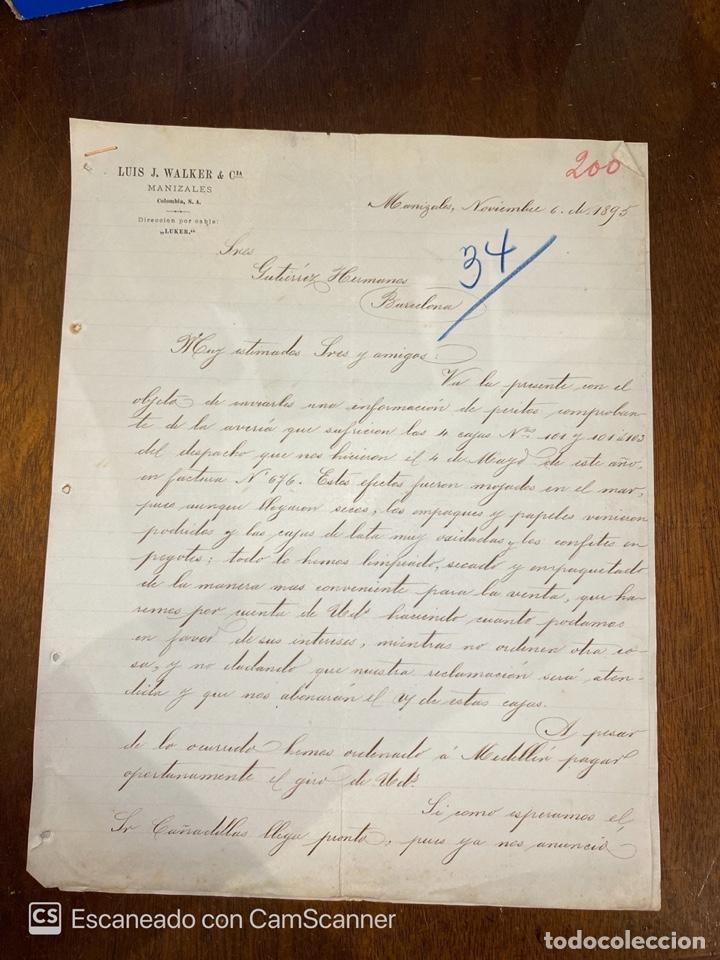 200
LUIS J. WALKER & CIA
MANIZALES
Colombia, S. A.
Direccion por cable:
„LUKER."
Manizales, Noviembre 6. de 1895
34
Sres
Gutiérrez Hermanos
Barcelona
Muy estimados Sres y amigos:
Va la presente con el
objeto de enviarles una información de peritos comproban-
te de la avería que sufrieron las 4 cajas Nros 101 y 101 á 103
del despacho que nos hicieron el 4 de Mayo de este año
en factura No 676. Estos efectos fueron mojados en el mar,
pues aunque llegaron secos, los empaques y papeles vinieron
podridos y las cajas de lata muy oxidadas y los confites en
pegotes; todo lo hemos limpiado, secado y empaquetado
de la manera mas conveniente para la venta, que ha-
remos por cuenta de Uds haciendo cuanto podamos
en favor de sus intereses, mientras no ordenen otra co-
sa, y no dudando que nuestra reclamación será aten-
dida y que nos abonarán el v/ de estas cajas.
A pesar
de lo ocurrido hemos ordenado á Medellín pagar
oportunamente el giro de Uds.
Si como esperamos el
Sr Cañadillas llega pronto, pues ya nos anunció
CS Escaneado con CamScanner
todocoleccion